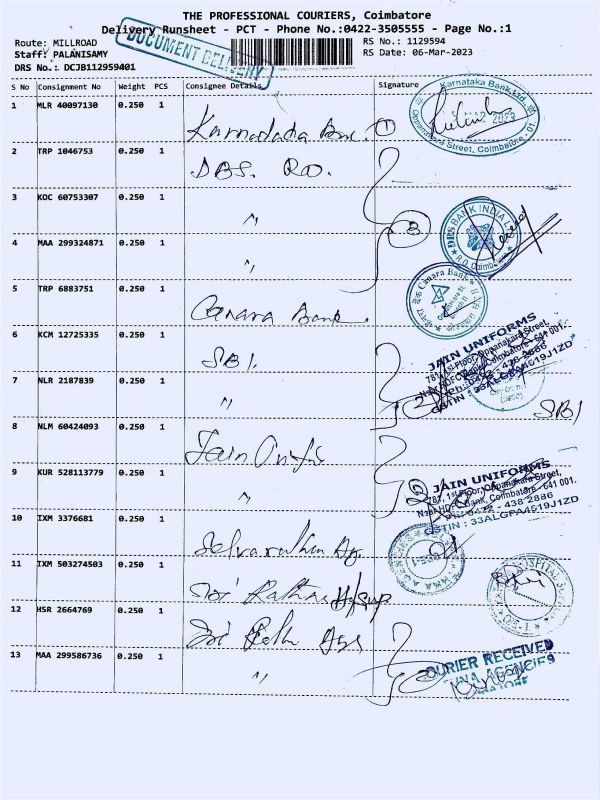 THE PROFESSIONAL COURIERS, Coimbatore
Delivery Runsheet - PCT - Phone No.:0422-3505555 - Page No.:1
DOCUMENT DELIVERY
Route: MILLROAD
RS No.: 1129594
Staff: PALANISAMY
RS Date: 06-Mar-2023
DRS No.: DCJB112959401
S No Consignment No Weight PCS Consignee Details Signature
1 MLR 40097130 0.250 1
Karnataka Bank Ltd.
Street, Coimbatore - 01.
2023
2 TRP 1046753 0.250 1 DBS. RO.
3 KOC 60753307 0.250 1 "
3
DBS BANK INDIA
R.O. Coimb
4 MAA 299324871 0.250 1 "
5 TRP 6883751 0.250 1 Canara Bank.
Canara Bank
6 KCM 12725335 0.250 1 SBI.
JAIN UNIFORMS
781, 1st Floor, Oppanakara Street,
Near HDFC Bank, Coimbatore - 641 001.
Ph: 0422 - 438 2886
GSTIN : 33ALGPA4619J1ZD
7 NLR 2187839 0.250 1 "
2
SBI
8 NLM 60424093 0.250 1 Jain
9 KUR 528113779 0.250 1 "
JAIN UNIFORMS
781, 1st Floor, Oppanakara Street,
Near HDFC Bank, Coimbatore - 641 001.
Ph: 0422 - 438 2886
GSTIN : 33ALGPA4619J1ZD
10 IXM 3376681 0.250 1
11 IXM 503274503 0.250 1 Sri
12 HSR 2664769 0.250 1 Sri
13 MAA 299586736 0.250 1 "
COURIER RECEIVED
AGENCIES